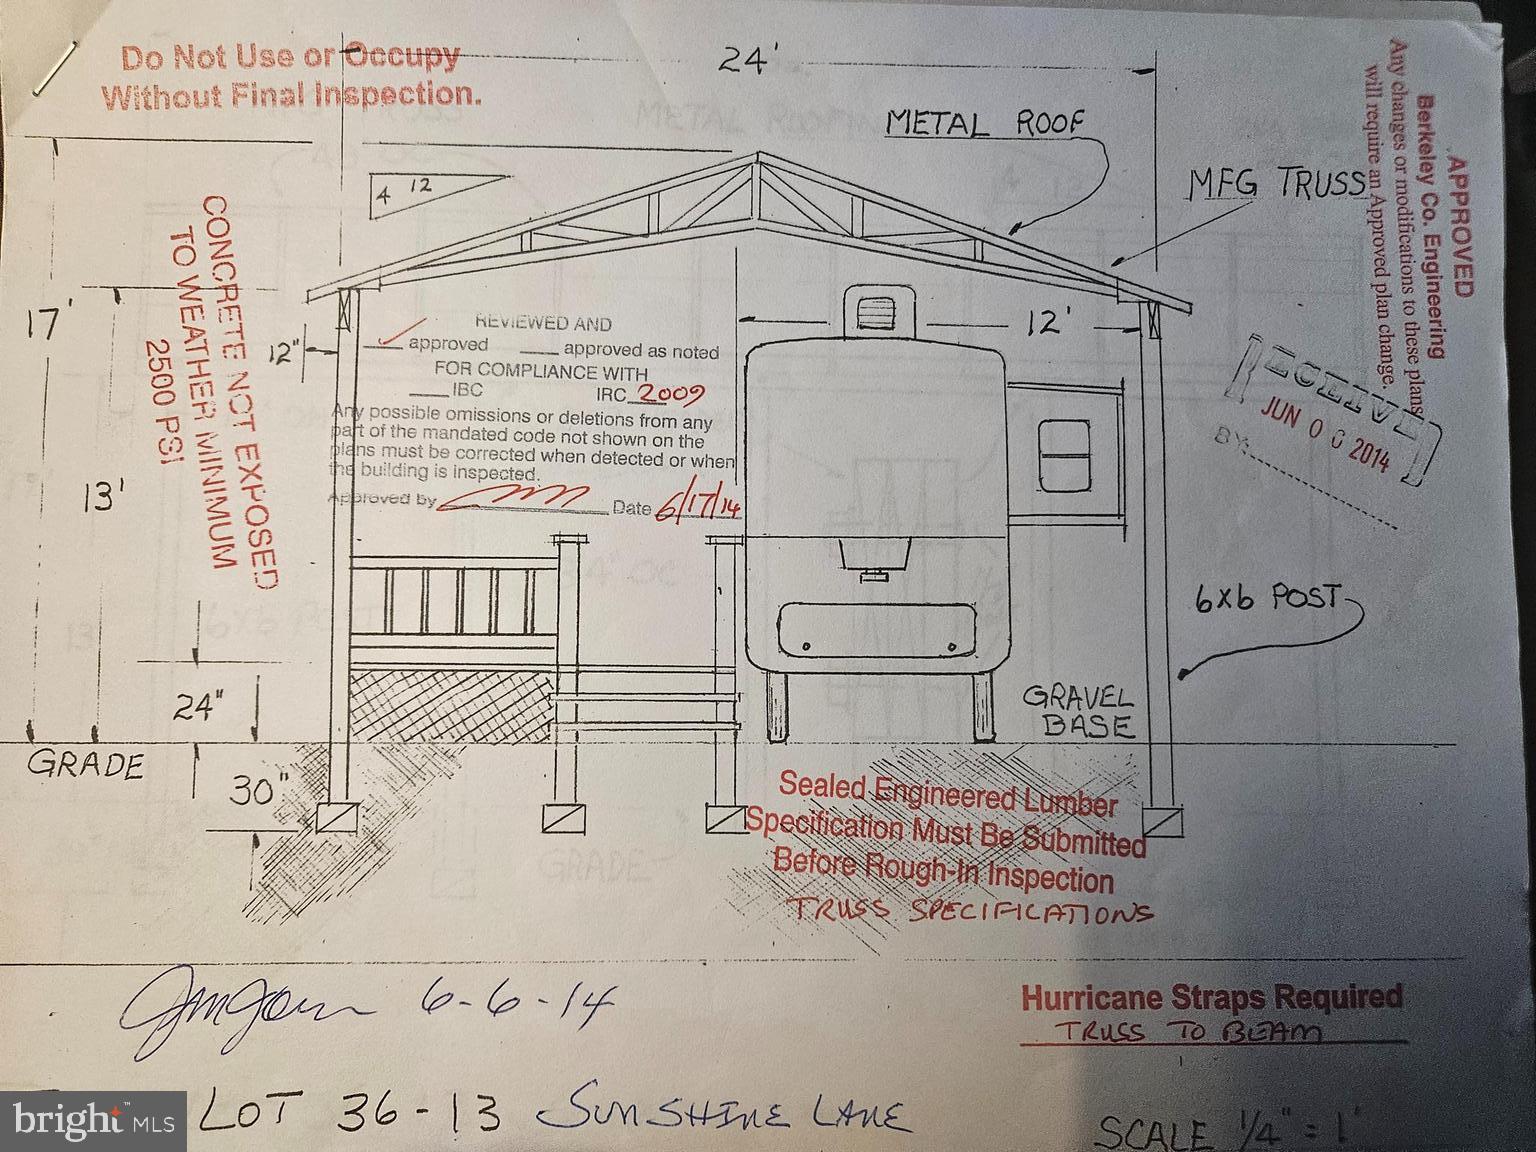 Do Not Use or Occupy
Without Final Inspection.
24'
METAL ROOF
MFG TRUSS
4 12
APPROVED
Berkeley Co. Engineering
Any changes or modifications to these plans
will require an Approved plan change.
CONCRETE NOT EXPOSED
TO WEATHER MINIMUM
2500 PSI
17'
13'
12"
12'
REVIEWED AND
approved approved as noted
FOR COMPLIANCE WITH
IBC IRC 2009
Any possible omissions or deletions from any
part of the mandated code not shown on the
plans must be corrected when detected or when
the building is inspected.
Approved by Date 6/17/14
RECEIVED
JUN 0 6 2014
BY:
6X6 POST
24"
GRAVEL
BASE
GRADE
30"
Sealed Engineered Lumber
Specification Must Be Submitted
Before Rough-In Inspection
TRUSS SPECIFICATIONS
6-6-14
Hurricane Straps Required
TRUSS TO BEAM
LOT 36-13 SUNSHINE LANE
SCALE 1/4" = 1'
bright MLS